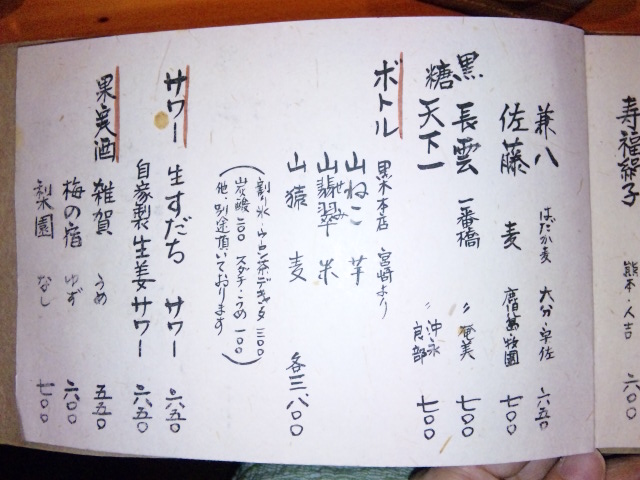 寿福絹子 熊本・人吉 六〇〇
兼八 はだか麦 大分・宇佐 六五〇
佐藤 麦 鹿児島牧園 七〇〇
黒糖
長雲 一番橋 〃 奄美 七〇〇
天下一 〃 沖永良部 七〇〇
ボトル
黒木本店 宮崎より
山ねこ 芋
山翡翠 米
山猿 麦 各三、八〇〇
(割り氷・ウーロン茶デキャンタ 三〇〇
炭酸 二〇〇 スダチ・うめ 一〇〇
他、別途頂いております)
サワー
生すだち サワー 六五〇
自家製生姜サワー 六五〇
果実酒
雑賀 うめ 五五〇
梅の宿 ゆず 六〇〇
梨園 なし 七〇〇